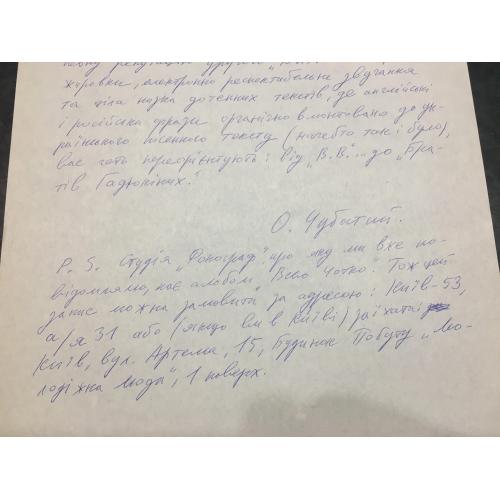 певну репутацію другої
жоровки, електронно респектабельне звучання
та ціла низка дотепних текстів, де англійські
і російська фрази органічно вмонтовано до ук-
раїнського пісенного тексту (начебто так і було),
вас хото переорієнтують: від „В.В."... до „Бра-
тів Гадюкіних".
О. Чубатий.
P. S. Студія „Фонограф", про яку ми вже по-
відомляли, має альбом „Все чотко". Тож цей
запис можна замовить за адресою: Київ-53,
а/я 31 або (якщо ви в Києві) заїхати
Київ, вул. Артема, 15, Будинок Побуту „Мо-
лодіжна мода", 1 поверх.